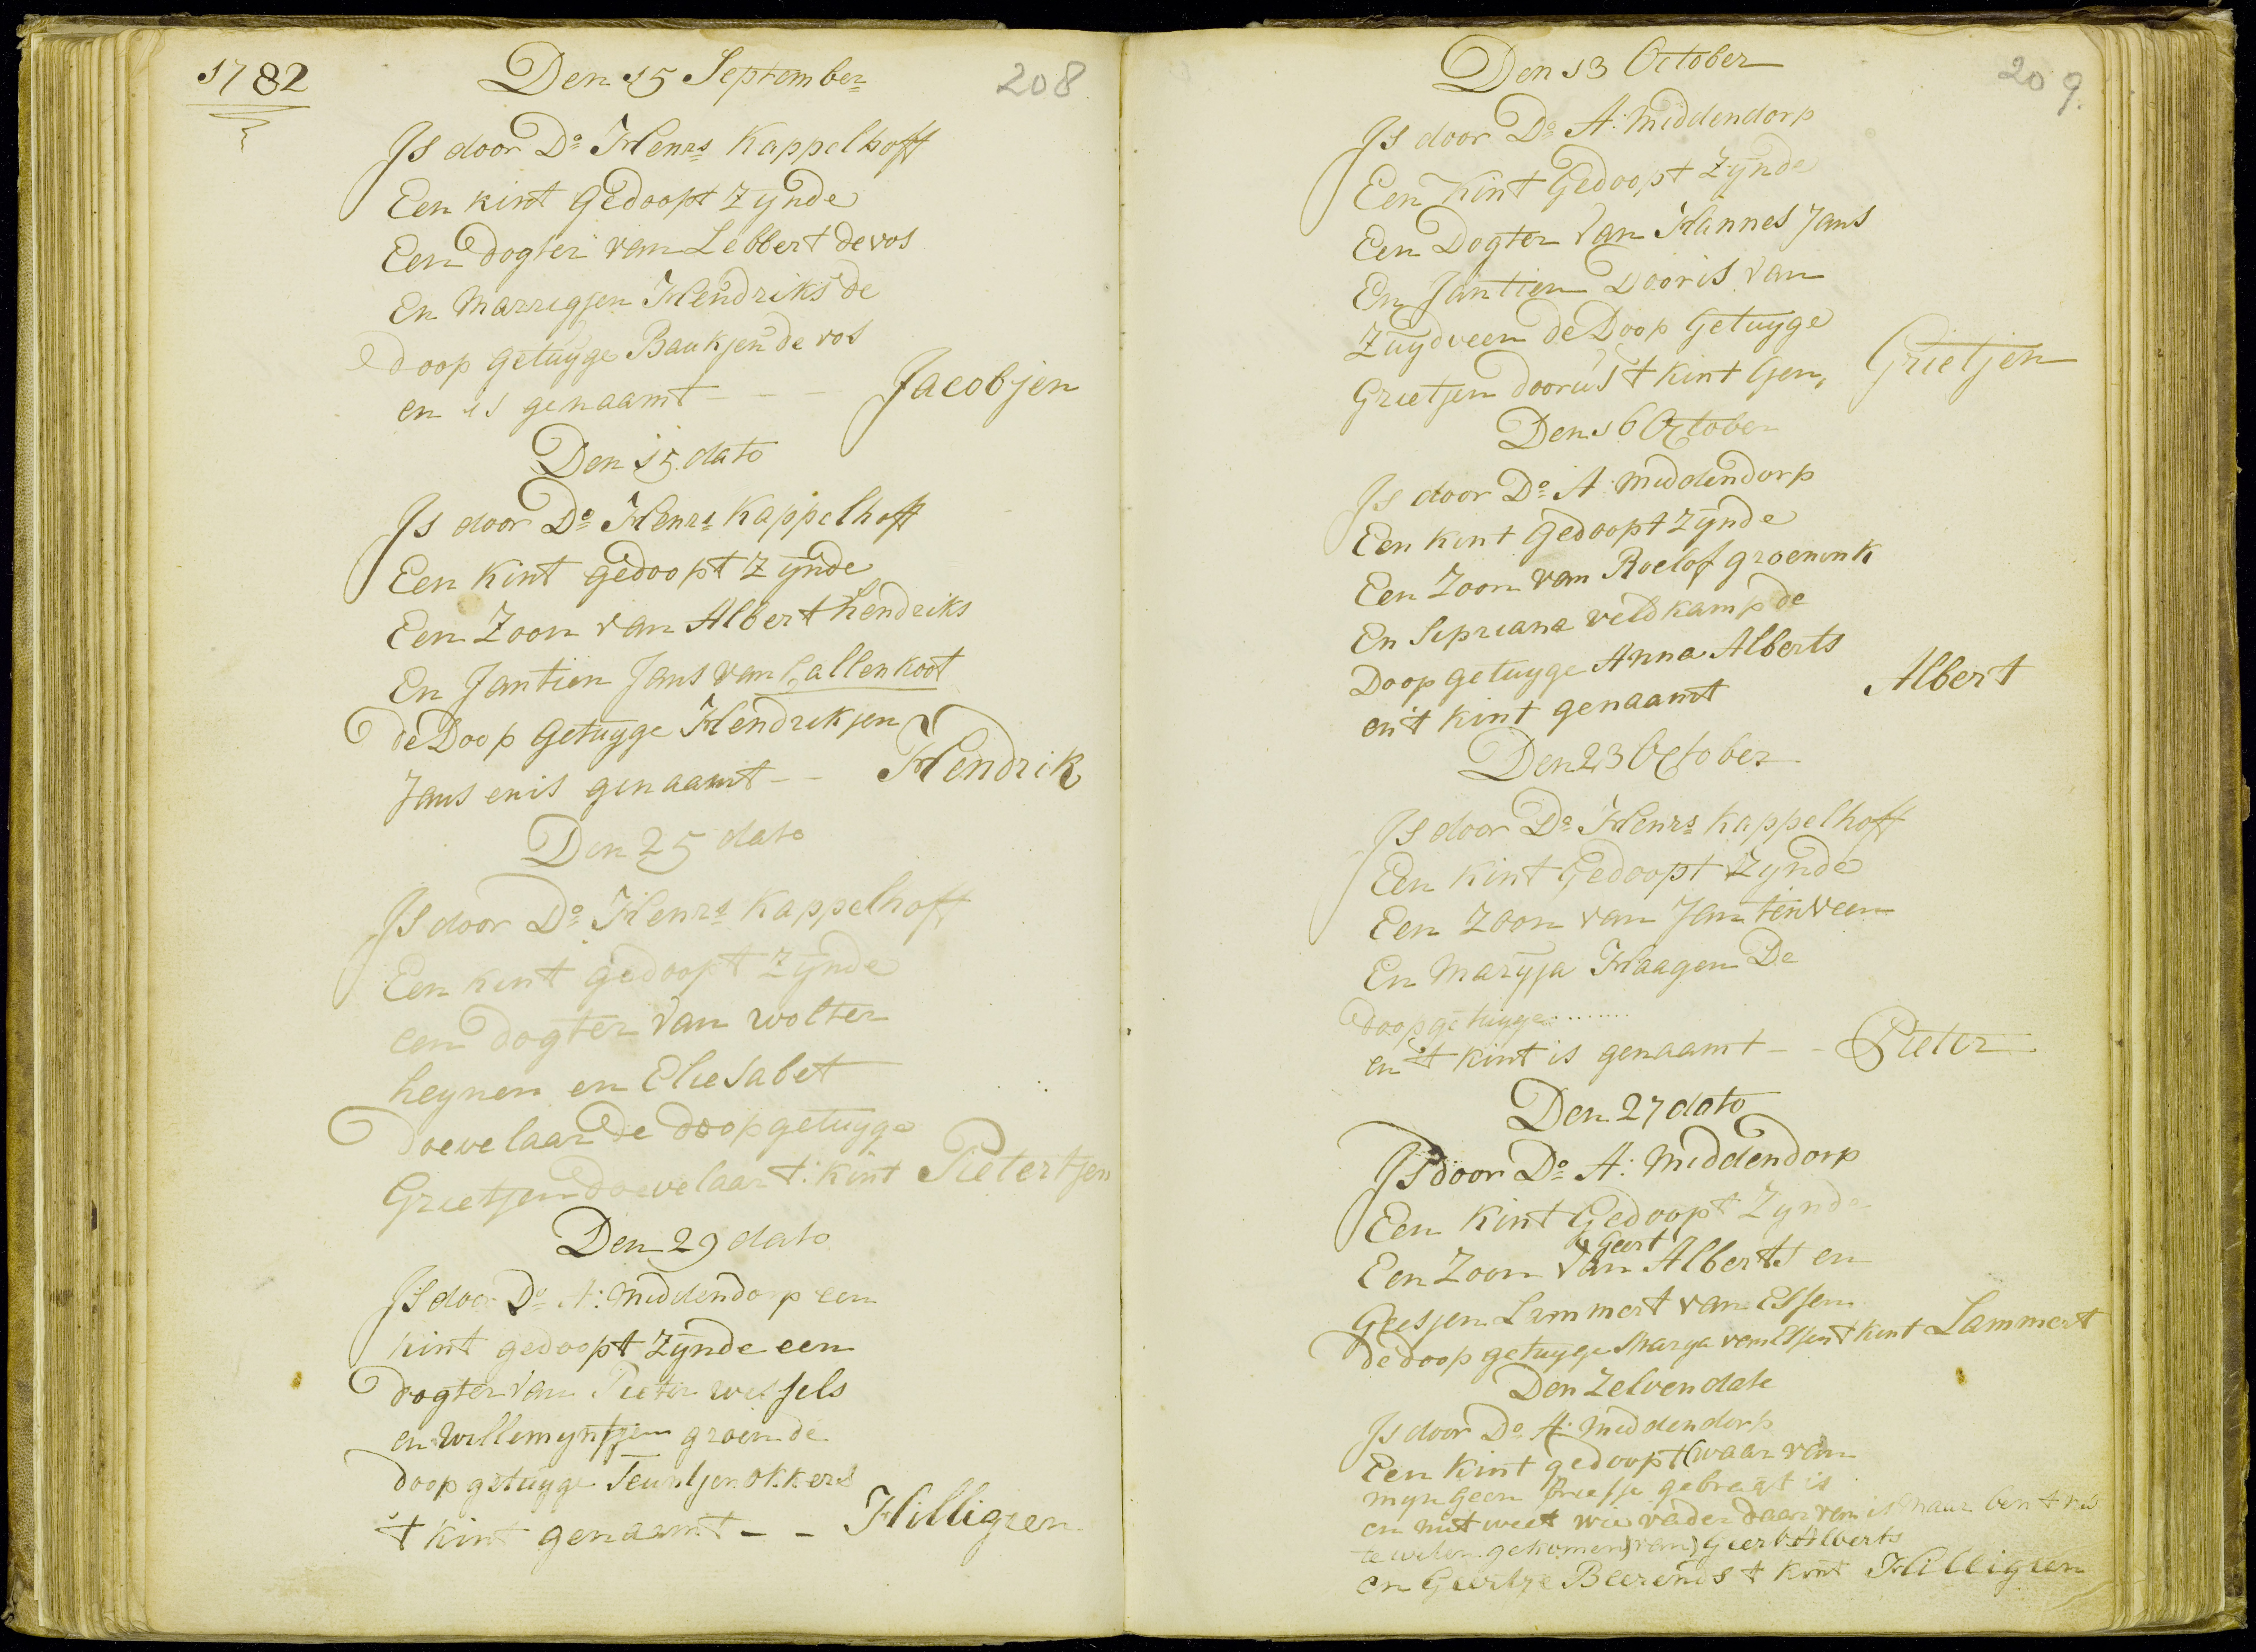 1782
Den 15 September
208
Js door Do Henrs Kappelhoff
Een kint Gedoopt Zynde
Een dogter van Lebbert devos
En Marregjen Hendriks de
doop getuyge Baukjen de vos
en is genaamt - - - Jacobjen
Den 15 dato
Js door Do Henrs Kappelhoff
Een Kint gedoopt Zynde
Een Zoon van Albert hendriks
En Jantien Jans van Callenkoot
de Doop Getuyge Hendrikjen
Jans enis genaamt - - Hendrik
Den 25 dato
Js door Do Henrs Kappelhoff
Een kint gedoopt Zynde
een dogter van wolter
heynen en Eliesabet
doevelaar de doopgetuyge
Grietjen doevelaar t: Kint Pietertjen
Den 29 dato
Js door Do A: Middendorp een
kint gedoopt Zynde een
dogter van Pieter wessels
en willemyntjen groen de
doop getuyge Teuntjen okkers
't kint genaamt - - Hilligjen
Den 13 October
209.
Js door Do A: Middendorp
Een Kint Gedoopt Zynde
Een Dogter van Hannes Jans
En Jantien Dooris van
Zuydveen de Doop Getuyge
Grietjen dooris t kint Gen, Grietjen
Den 16 October
Js door Do A: Middendorp
Een kint Gedoopt Zynde
Een Zoon van Roelof groenink
En Sipriana veldkamp de
Doop getuyge Anna Alberts
en't kint genaamt Albert
Den 23 October
Js door Do Henrs Kappelhoff
Een Kint Gedoopt Zynde
Een Zoon van Jan tinveen
En Maryja Haagen De
doopgetuyge..........
en 't kint is genaamt - - Pieter
Den 27 dato
Js door Do A: Middendorp
Een Kint Gedoopt Zynde
Geert
Een Zoon van Alberts en
Geesjen Lammert van Essen
de doop getuyge Marya van Essen t kint Lammert
Den Zelven date
Js door Do A: Middendorp
Een kint gedoopt (waar van
myn geen briefje gebragt is
en niet weet wie vader daar van is maar ben t nu
te weten gekomen) van) Geert Alberts
en Geertje Beerends t kint Hilligjen